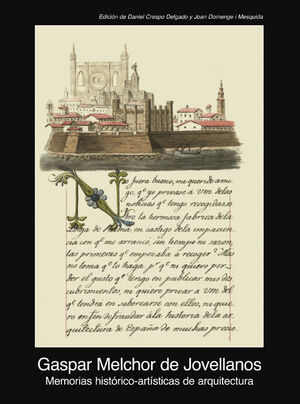 Edición de Daniel Crespo Delgado y Joan Domenge i Mesquida
No fuera bueno, mi querido ami-
go, qe yo privase á Vm. de las
noticias qe tengo recogidas so-
bre la hermosa fabrica de la
Lonja de Palma, en castigo de la impacien-
cia con qe me arrancó, sin tiempo ni sazon,
las primeras qe empezaba á recoger? Mas
no tema qe lo haga, pr qe ni quiero per-
der el gusto qe tengo en publicar mis des-
cubrimientos, ni quiero privar a Vm del
qe tendrá en saborearse con ellos, ni quie-
ro en fin defraudar á la historia de la ar-
quitectura de España de muchas precio
Gaspar Melchor de Jovellanos
Memorias histórico-artísticas de arquitectura